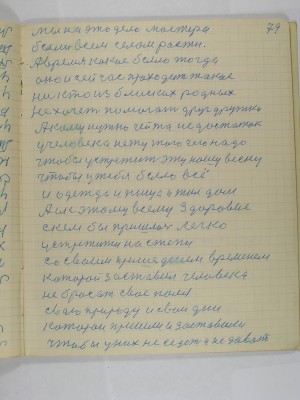 79
мелка это дело мастера
были всем селом расти.
А время какое было тогда
оно и сейчас приходит такое
никто из близких родных
не хочет помогать друг дружке
А кому нужно чей та недостаток
у человека нету того чего надо
чтобы устретит эту нову весну
чтобы у тебя было всё
и одежда и пища и там дом
А к этому всему здоровье
с кем бы пришлось легко
устретится на степи
со своем пришедшем временем
которой заставил человека
не бросат свое поля
свою природу и свои дни
которои пришли и заставили
чтобы у них не сидет а не давать